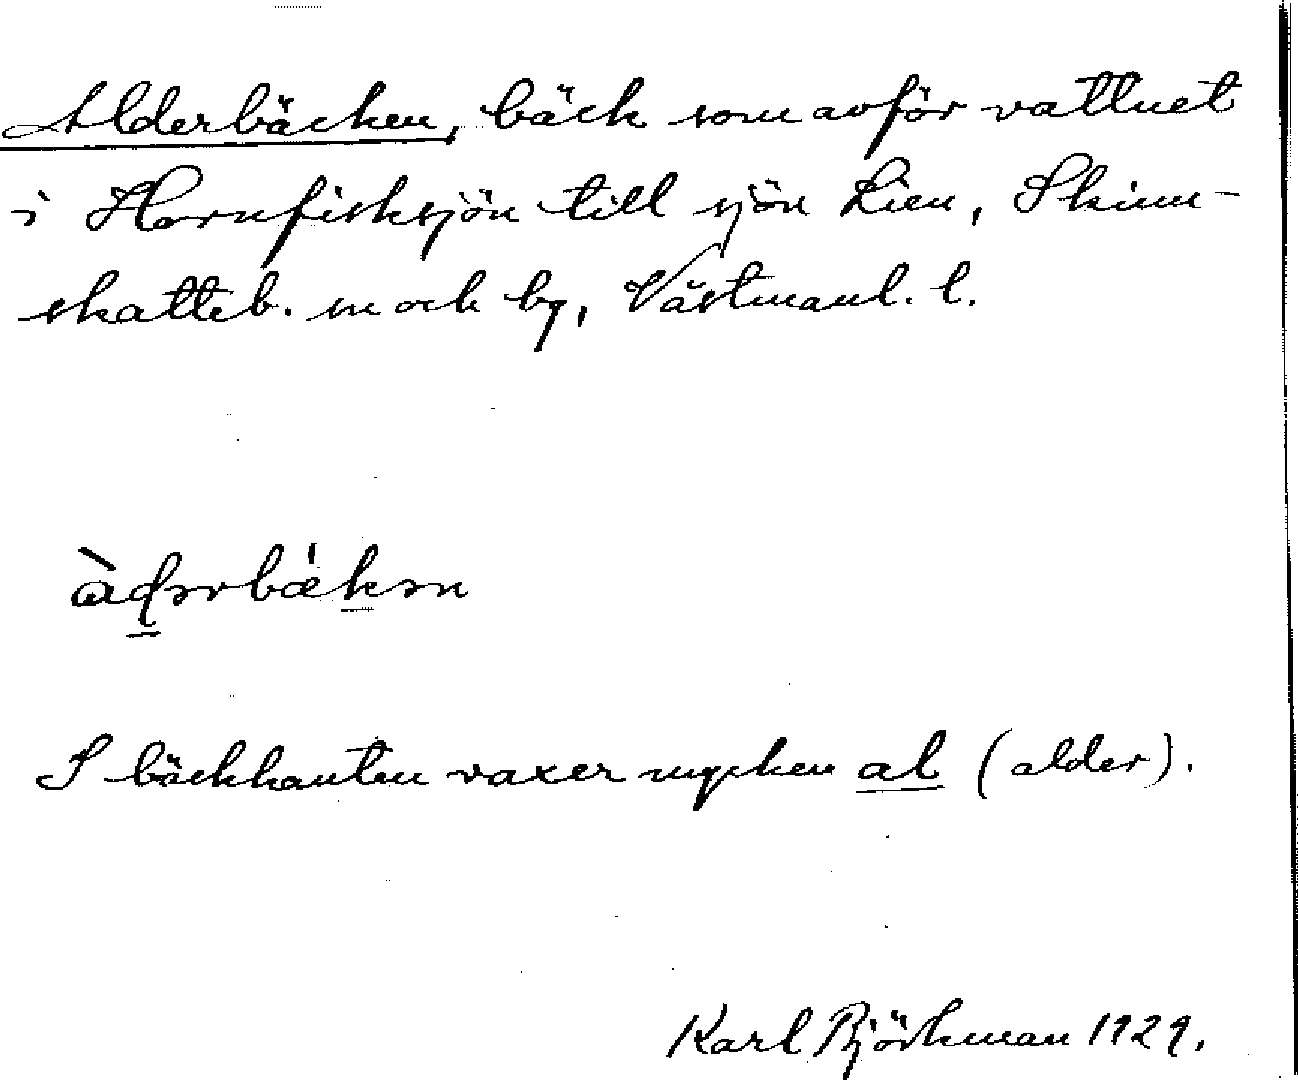 Alderbäcken, bäck som avför vattnet
i Hornfisksjön till sjön Lien, Skinn-
skatteb. sn och by, Västmanl. l.
àdərbäkən
I bäckkanten växer mycken al (alder).
Karl Björkman 1929.